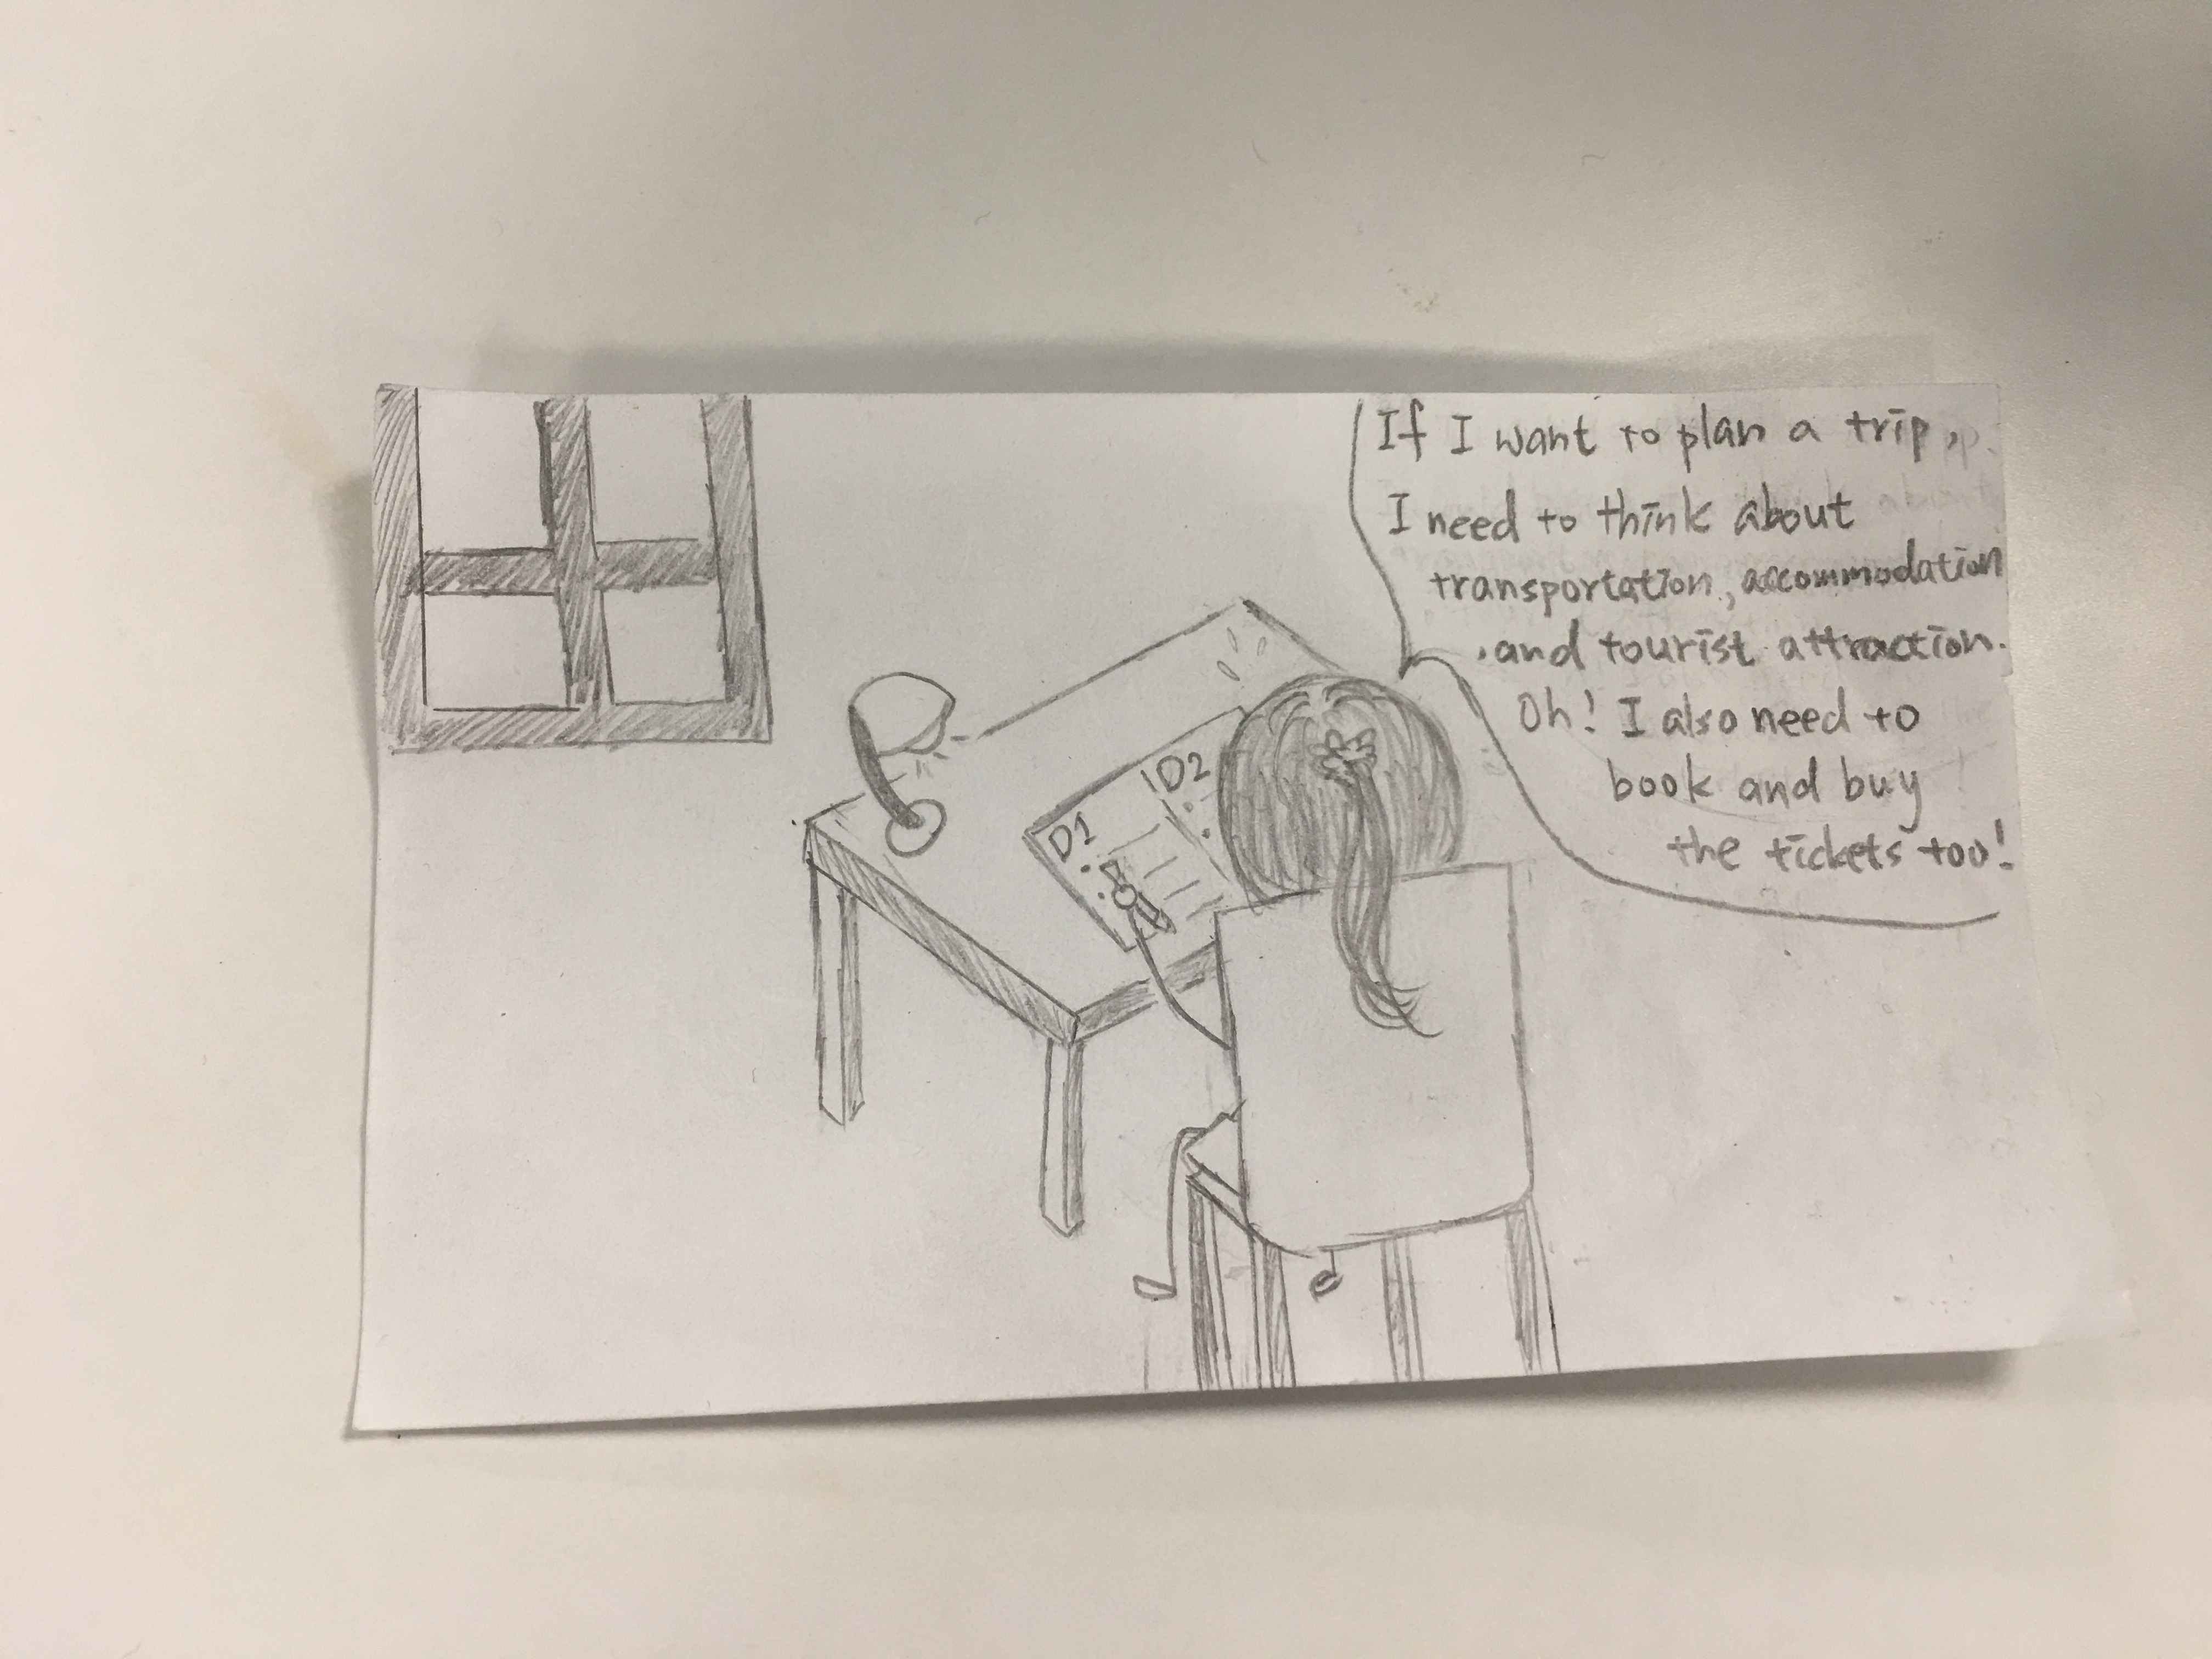 If I want to plan a trip,
I need to think about
transportation, accommodation
and tourist attraction.
Oh! I also need to
book and buy
the tickets too!
D1
D2